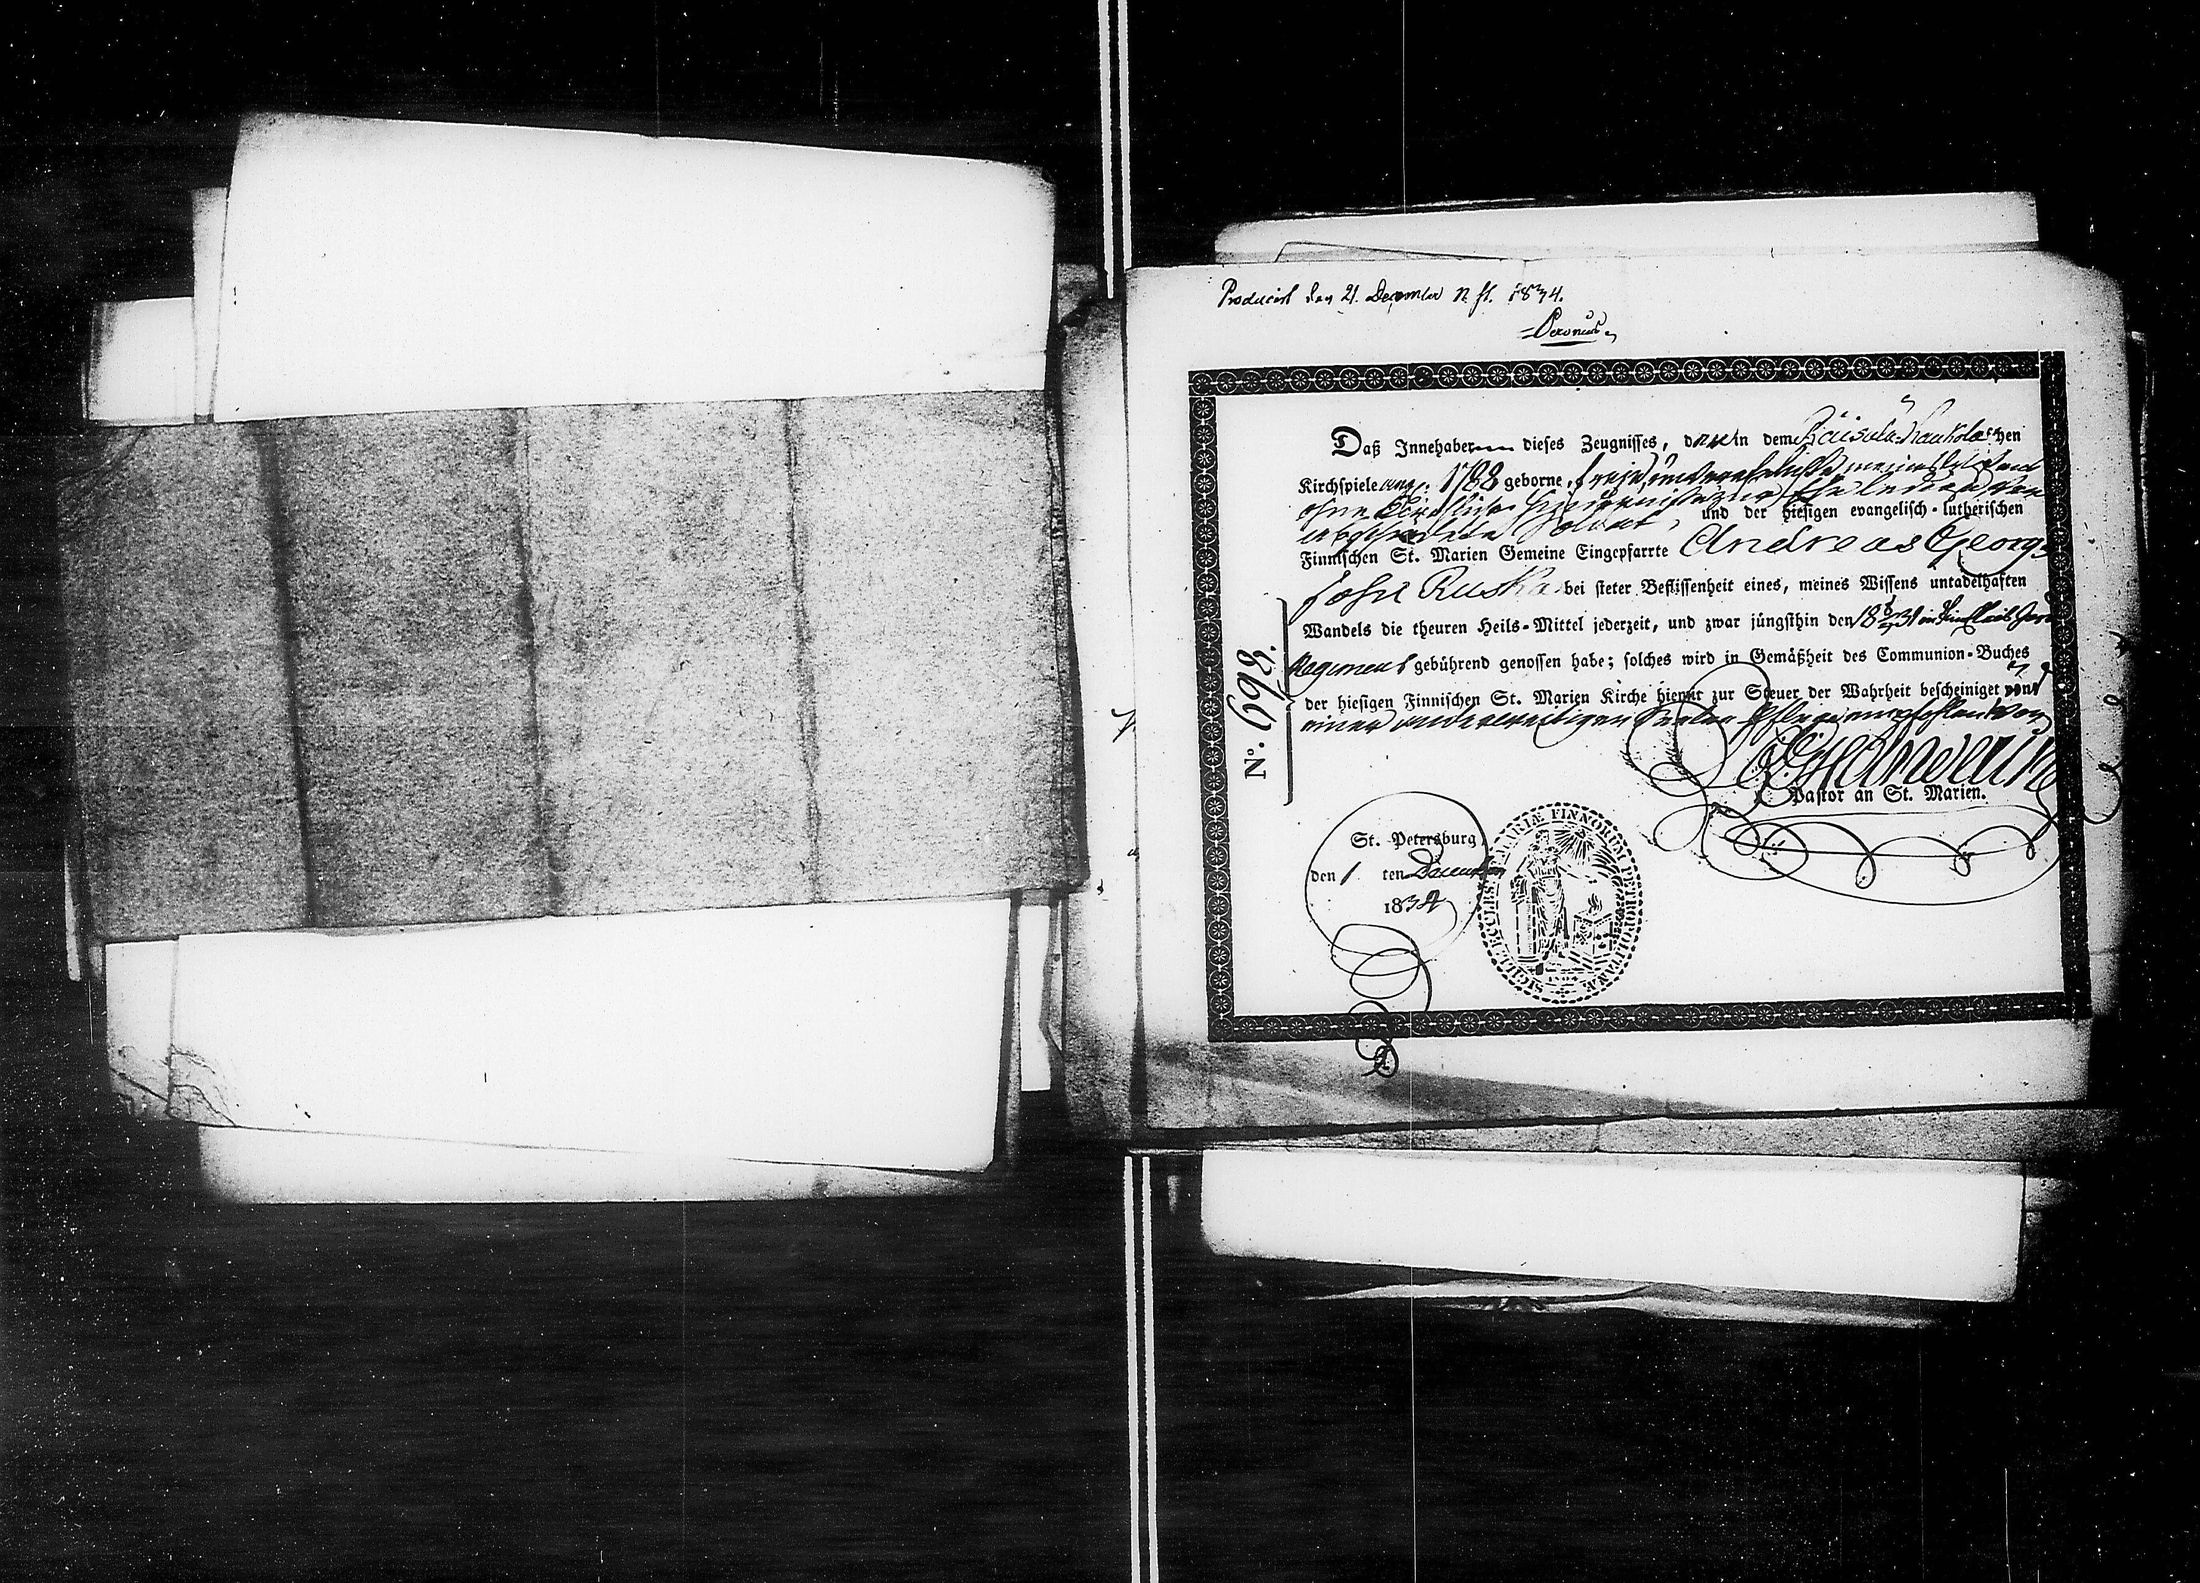 Producirt den 21. December n. st. 1834.
Daß Innehaber dieses Zeugnisses, der in dem Räisälä Kaukolaschen
Kirchspiele anno. 1788 geborne, freie, unverehelichte, meines Wissens
ohne zur Ehe
Soldat, und der hiesigen evangelisch-lutherischen
Finnischen St. Marien Gemeine Eingepfarrte Andreas Georgs
Sohn Ruska bei steter Beflissenheit eines, meines Wissens untadelhaften
Wandels die theuren Heils-Mittel jederzeit, und zwar jüngsthin den
Regiment gebührend genossen habe; solches wird in Gemäßheit des Communion-Buches
der hiesigen Finnischen St. Marien Kirche hiemit zur Steuer der Wahrheit bescheiniget
einer anderweitigen Seelen Pflege empfohlen von
Pastor an St. Marien.
No. 698.
St. Petersburg,
den 1 ten December
1834
SIGIL. ECCLES. MARIÆ FINNORUM PETROPOLITANÆ